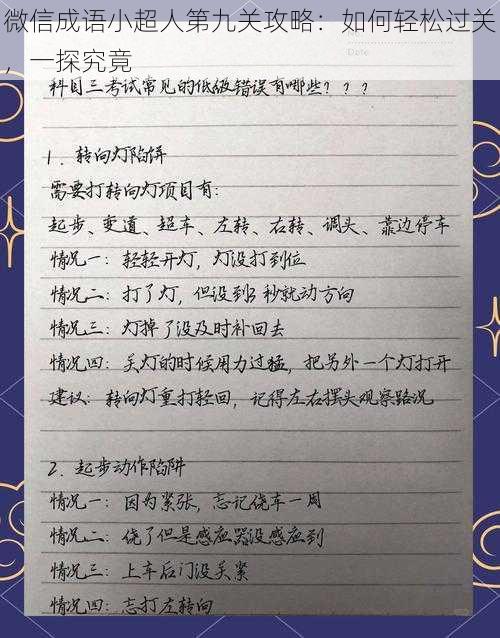 微信成语小超人第九关攻略：如何轻松过关
，一探究竟
科目三考试常见的低级错误有哪些？？？
1．转向灯陷阱
需要打转向灯项目有：
起步、变道、超车、左转、右转、调头、靠边停车
情况一：轻轻开灯，灯没打到位
情况二：打了灯，但没到3秒就动方向
情况三：灯掉了没及时补回去
情况四：关灯的时候用力过猛，把另外一个灯打开
建议：转向灯重打轻回，记得左右摆头观察路况
2．起步动作陷阱
情况一：因为紧张，忘记绕车一周
情况二：绕了但是感应器没感应到
情况三：上车后门没关紧
情况四：忘打左转向